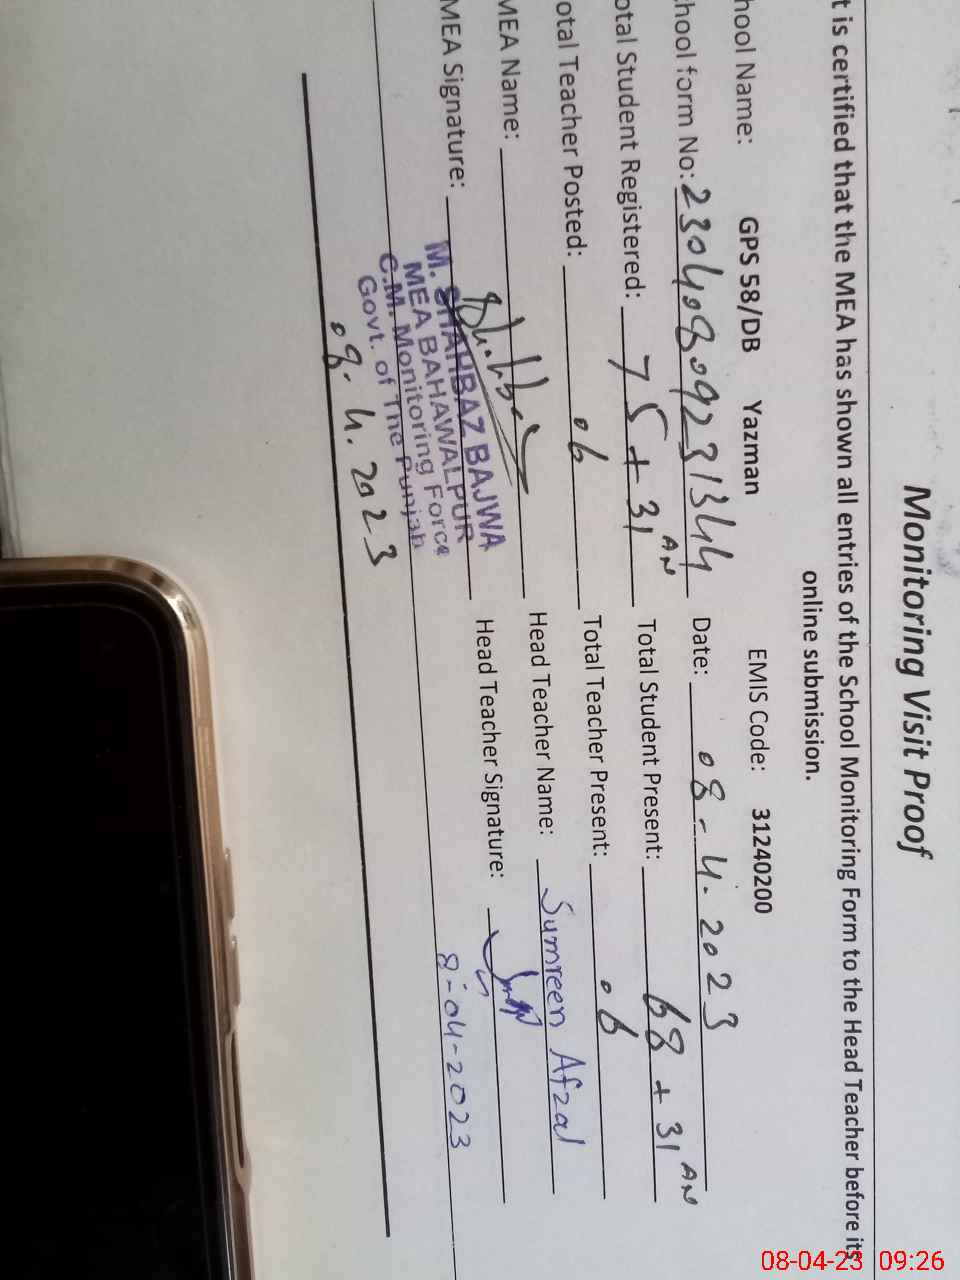 Monitoring Visit Proof
t is certified that the MEA has shown all entries of the School Monitoring Form to the Head Teacher before its
online submission.
hool Name: GPS 58/DB Yazman EMIS Code: 31240200
chool form No: 23040809231344 Date: 08-4.2023
otal Student Registered: 75+31 AN Total Student Present: 68+31 AN
otal Teacher Posted: 06 Total Teacher Present: 06
MEA Name: Head Teacher Name: Sumreen Afzal
MEA Signature: Head Teacher Signature:
M. SHAHBAZ BAJWA
MEA BAHAWALPUR
C.M. Monitoring Force
Govt. of The Punjab
08.4.2023
8-04-2023
08-04-23 09:26